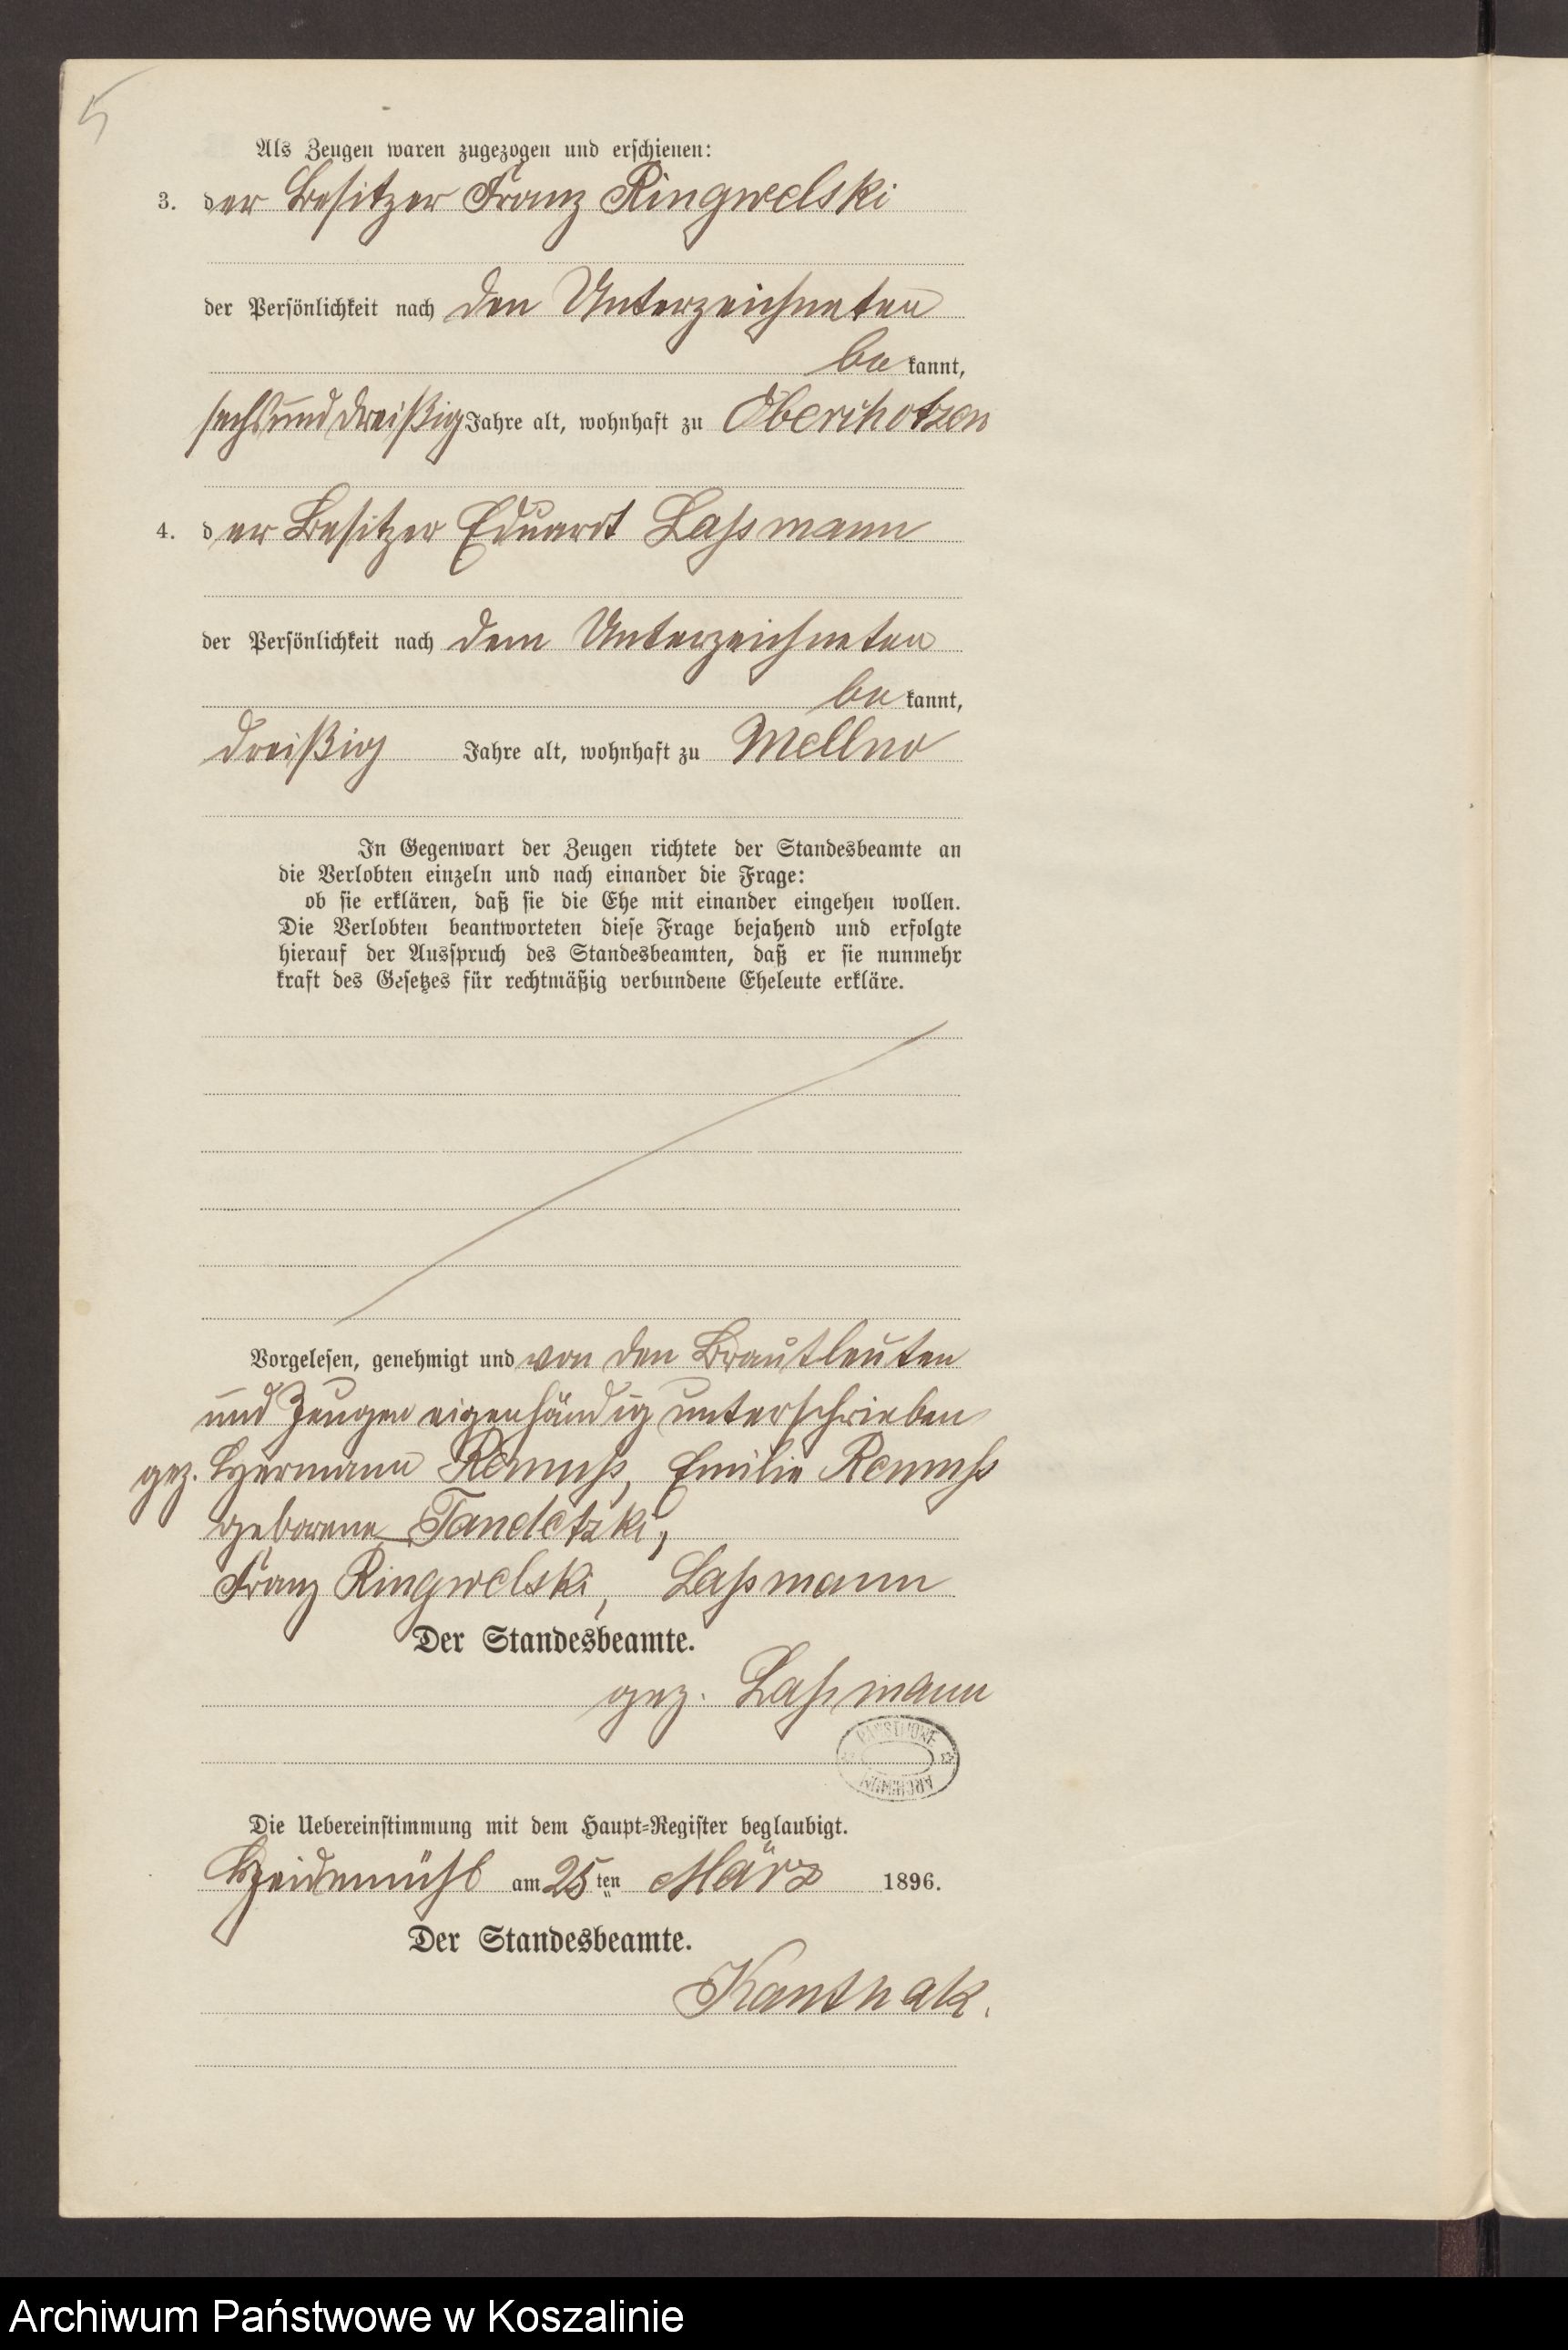 5
Als Zeugen waren zugezogen und erschienen:
3. der Besitzer Franz Ringwelski
der Persönlichkeit nach den Unterzeichneten
be kannt,
sechsunddreißig Jahre alt, wohnhaft zu
4. der Besitzer Eduard Laßmann
der Persönlichkeit nach dem Unterzeichneten
be kannt,
dreißig Jahre alt, wohnhaft zu Mellno
In Gegenwart der Zeugen richtete der Standesbeamte an
die Verlobten einzeln und nach einander die Frage:
ob sie erklären, daß sie die Ehe mit einander eingehen wollen.
Die Verlobten beantworteten diese Frage bejahend und erfolgte
hierauf der Ausspruch des Standesbeamten, daß er sie nunmehr
kraft des Gesetzes für rechtmäßig verbundene Eheleute erkläre.
Vorgelesen, genehmigt und von den Brautleuten
und Zeugen eigenhändig unterschrieben
gez. Hermann Remuß, Emilie Remuß
geborene Tandetzki,
Franz Ringwelski, Laßmann
Der Standesbeamte.
gez. Laßmann
PAŃSTWOWE
ARCHIWUM
Die Uebereinstimmung mit dem Haupt-Register beglaubigt.
Heidemühl am 25 ten März 1896.
Der Standesbeamte.
Kanthak.
Archiwum Państwowe w Koszalinie